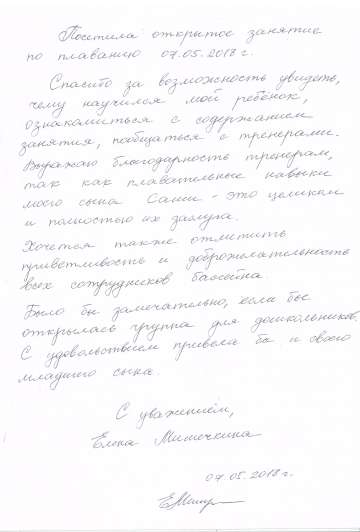 Посетила открытое занятие
по плаванию 07.05.2018 г.
Спасибо за возможность увидеть,
чему научился мой ребёнок,
ознакомиться с содержанием
занятия, пообщаться с тренерами.
Выражаю благодарность тренерам,
так как плавательные навыки
моего сына Саши - это целиком
и полностью их заслуга.
Хочется также отметить
приветливость и доброжелательность
всех сотрудников бассейна
Было бы замечательно, если бы
открылась группа для дошкольников,
С удовольствием привела бы и своего
младшего сына.
С уважением,
Елена Митечкина
07.05.2018 г.